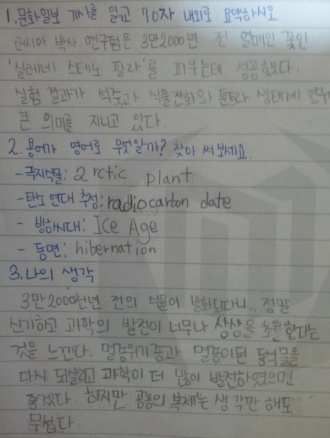 1. 문화일보 기사를 읽고 70자 내외로 요약하시오
러시아 박사 연구팀은 3만2000년 전 열매인 꽃인
'실레네 스테노 필라'를 피우는데 성공했다.
실험 결과가 식물진화와 툰드라 생태계 연구에
큰 의미를 지니고 있다
2. 용어가 영어로 무엇일까? 찾아 써보세요.
- 극지식물: arctic plant
- 탄소 연대 추정: radiocarton date
- 빙하시대: Ice Age
- 동면: hibernation
3. 나의 생각
3만 2000천년 전의 식물이 발화되다니.. 정말
신기하고 과학의 발전이 너무나 상상을 초월한다는
것을 느낀다. 멸종위기종과 멸종이된 동식물을
다시 되살리고 과학이 더 많이 발전하였으면
좋겠다. 하지만 공룡의 복제는 생각만 해도
무섭다.